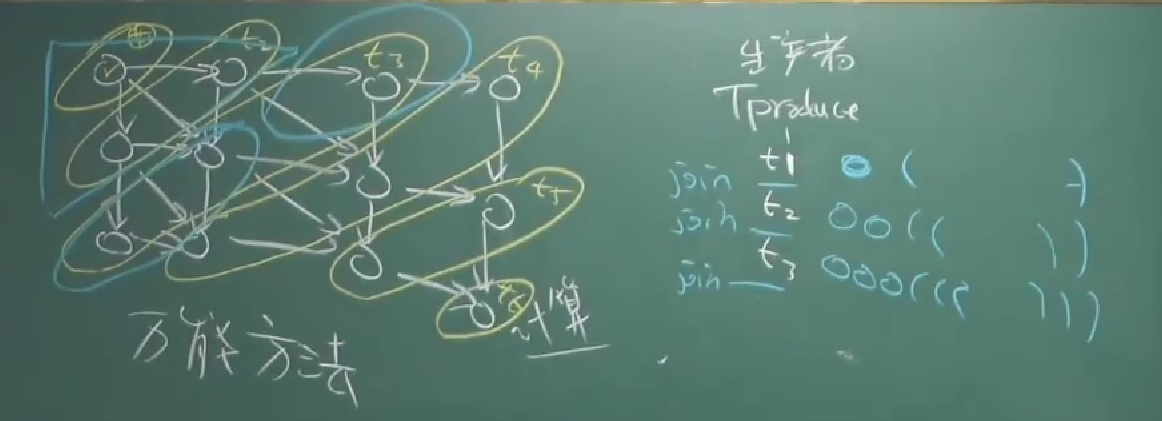 t₂
t3
t4
t5
万能方法
计算
生产者
Tproduce
join t1 (        )
join t₂ ((        ))
join t₃ (((        )))